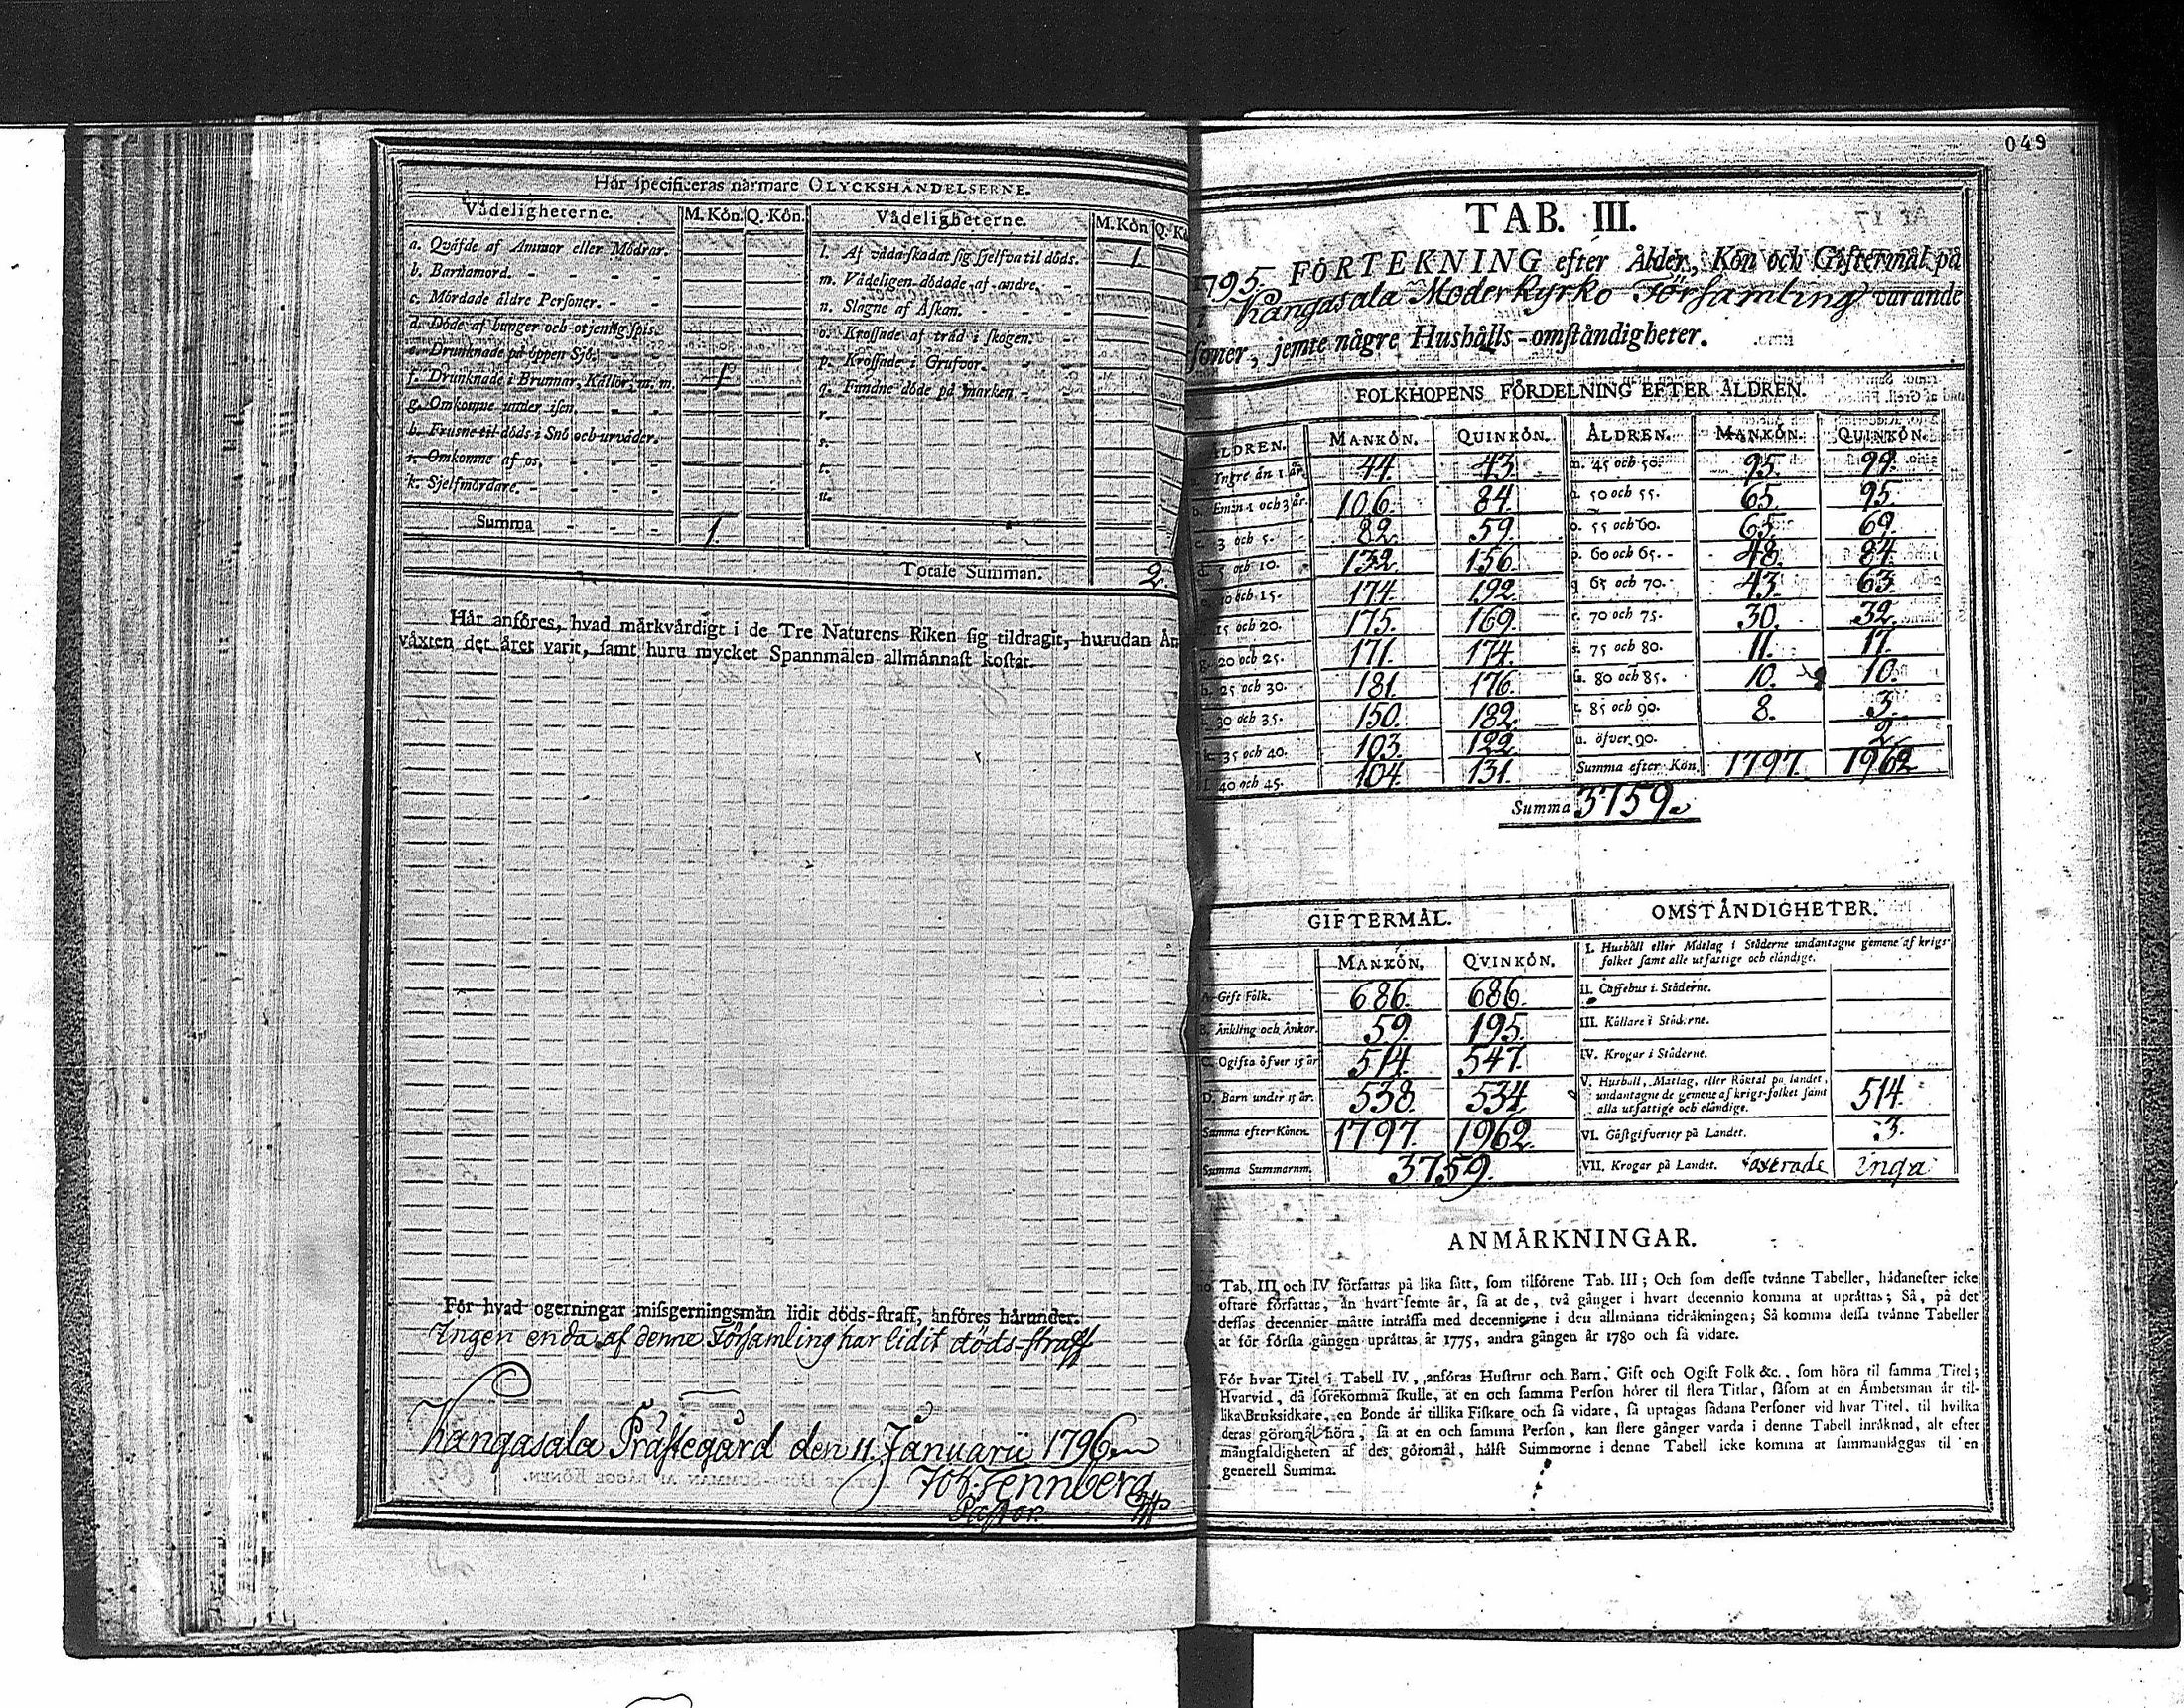 Hår specificeras nårmare OLYCKSHÅNDELSERNE.
Vådeligheterne. M. Kön. Q. Kön. Vådeligheterne. M. Kön Q. Kö
a. Qväfde af Ammor eller Mödrar. l. Af våda skadat sig sjelfva til döds. 1.
b. Barnamord. m. Vådeligen dödade af andre.
c. Mördade äldre Personer. n. Slagne af Åskan.
d. Döde af hunger och otjenlig spis. o. Krossade af träd i skogen.
e. Drunknade på öppen Sjö. p. Krossade i Grufvor.
f. Drunknade i Brunnar, Källor, m. m. 1 q. Fundne döde på marken
g. Omkomne under isen. r.
h. Frusne til döds i Snö och urväder. s.
i. Omkomne af os. t.
k. Sjelfmördare. u.
Summa 1.
Totale Summan. 2.
Hår anföres, hvad mårkvårdigt i de Tre Naturens Riken sig tildragit, hurudan År-
växten det året varit, samt huru mycket Spannmålen allmånnast kostat.
För hvad ogerningar missgerningsmän lidit döds-straff, anföres hårunder.
Ingen enda af denne Församling har lidit döds-straff
Kangasala Prästegård den 11. Januarii 1796
Joh. Tennberg
Pastor.
049
TAB. III.
1795. FÖRTEKNING efter Ålder, Kön och Giftermål på
i Kangasala Moderkyrko Församling varande
soner, jemte någre Hushålls-omståndigheter.
FOLKHOPENS FÖRDELNING EFTER ÅLDREN.
ÅLDREN. MANKÖN. QUINKÖN. ÅLDREN. MANKÖN. QUINKÖN.
Yngre än 1 år. 44. 43. m. 45 och 50. 95. 99.
b. Emin 1 och 3 år. 106. 84. n. 50 och 55. 65. 95.
c. 3 och 5. 82. 59. o. 55 och 60. 65. 69.
d. 5 och 10. 132. 156. p. 60 och 65. 48. 84.
e. 10 och 15. 174. 192. q 65 och 70. 43. 63.
15 och 20. 175. 169. r. 70 och 75. 30. 32.
g. 20 och 25. 171. 174. s. 75 och 80. 11. 17.
h. 25 och 30. 181. 176. 80 och 85. 10. 10.
i. 30 och 35. 150. 182. t. 85 och 90. 8. 3.
k. 35 och 40. 103. 122. u. öfver 90. 2
l. 40 och 45. 104. 131. Summa efter Kön. 1797. 1962
Summa 3759.
GIFTERMÅL. OMSTÅNDIGHETER.
MANKÖN. QVINKÖN. I. Hushåll eller Matlag i Städerne undantagne gemene af krigs-
folket samt alle utfattige och elåndige.
A. Gift Folk. 686. 686. II. Caffehus i Städerne.
B. Änkling och Änkor. 59. 195. III. Källare i Städerne.
C. Ogifta öfver 15 år 514. 547. IV. Krogar i Städerne.
D. Barn under 15 år. 538. 534. V. Hushåll, Matlag, eller Röktal på landet,
undantagne de gemene af krigs-folket samt
alla utfattige och elåndige. 514.
Summa efter Könen. 1797. 1962. VI. Gästgifverier på Landet. 3.
Summa Summarum. 3759. VII. Krogar på Landet. taxerade inga
ANMÅRKNINGAR.
Tab. III och IV författas på lika sätt, som tilförene Tab. III; Och som desse tvånne Tabeller, hådanefter icke
oftare författas, ån hvart femte år, så at de, två gånger i hvart decennio komma at upråttas; Så, på det
dessas decennier måtte intråffa med decennierne i den allmånna tidråkningen; Så komma dessa tvånne Tabeller
at för första gången upråttas år 1775, andra gången år 1780 och så vidare.
För hvar Titel i Tabell IV, anföras Hustrur och Barn, Gift och Ogift Folk &c. som höra til samma Titel;
Hvarvid, då förekomma skulle, at en och samma Person hörer til flera Titlar, såsom at en Åmbetsman år til-
lika Bruksidkare, en Bonde år tillika Fiskare och så vidare, så uptagas sådana Personer vid hvar Titel, til hvilka
deras göromål höra, så at en och samma Person, kan flere gånger varda i denne Tabell inråknad, alt efter
mångfaldigheten af des göromål, hålst Summorne i denne Tabell icke komma at sammanläggas til en
generell Summa.